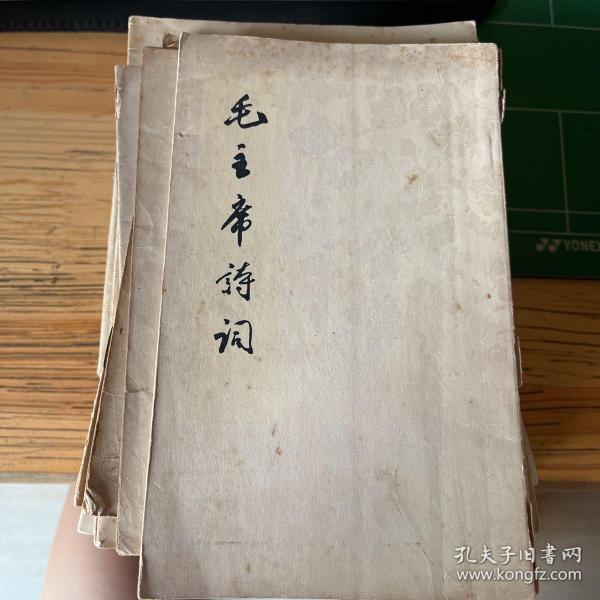 毛主席詩词
YONEX
孔夫子旧書网
www.kongfz.com